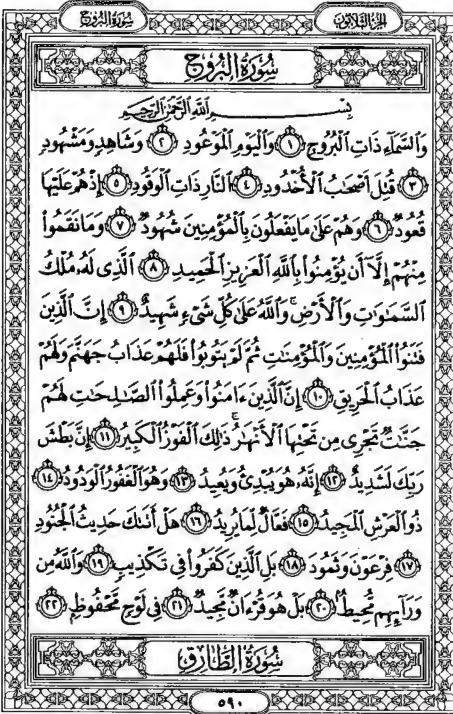 سُورَةُ البُرُوجِ الجُزْءُ الثَّلَاثُونَ
سُورَةُ البُرُوجِ
بِسْمِ اللَّهِ الرَّحْمَٰنِ الرَّحِيمِ
وَالسَّمَاءِ ذَاتِ الْبُرُوجِ ١ وَالْيَوْمِ الْمَوْعُودِ ٢ وَشَاهِدٍ وَمَشْهُودٍ
٣ قُتِلَ أَصْحَٰبُ الْأُخْدُودِ ٤ النَّارِ ذَاتِ الْوَقُودِ ٥ إِذْ هُمْ عَلَيْهَا
قُعُودٌ ٦ وَهُمْ عَلَىٰ مَا يَفْعَلُونَ بِالْمُؤْمِنِينَ شُهُودٌ ٧ وَمَا نَقَمُوا
مِنْهُمْ إِلَّا أَن يُؤْمِنُوا بِاللَّهِ الْعَزِيزِ الْحَمِيدِ ٨ الَّذِي لَهُ مُلْكُ
السَّمَٰوَٰتِ وَالْأَرْضِ ۚ وَاللَّهُ عَلَىٰ كُلِّ شَيْءٍ شَهِيدٌ ٩ إِنَّ الَّذِينَ
فَتَنُوا الْمُؤْمِنِينَ وَالْمُؤْمِنَٰتِ ثُمَّ لَمْ يَتُوبُوا فَلَهُمْ عَذَابُ جَهَنَّمَ وَلَهُمْ
عَذَابُ الْحَرِيقِ ١٠ إِنَّ الَّذِينَ ءَامَنُوا وَعَمِلُوا الصَّٰلِحَٰتِ لَهُمْ
جَنَّٰتٌ تَجْرِي مِن تَحْتِهَا الْأَنْهَٰرُ ۚ ذَٰلِكَ الْفَوْزُ الْكَبِيرُ ١١ إِنَّ بَطْشَ
رَبِّكَ لَشَدِيدٌ ١٢ إِنَّهُ هُوَ يُبْدِئُ وَيُعِيدُ ١٣ وَهُوَ الْغَفُورُ الْوَدُودُ ١٤
ذُو الْعَرْشِ الْمَجِيدُ ١٥ فَعَّالٌ لِّمَا يُرِيدُ ١٦ هَلْ أَتَىٰكَ حَدِيثُ الْجُنُودِ
١٧ فِرْعَوْنَ وَثَمُودَ ١٨ بَلِ الَّذِينَ كَفَرُوا فِي تَكْذِيبٍ ١٩ وَاللَّهُ مِن
وَرَآئِهِم مُّحِيطٌ ٢٠ بَلْ هُوَ قُرْءَانٌ مَّجِيدٌ ٢١ فِي لَوْحٍ مَّحْفُوظٍ ٢٢
سُورَةُ الطَّارِقِ
٥٩٠